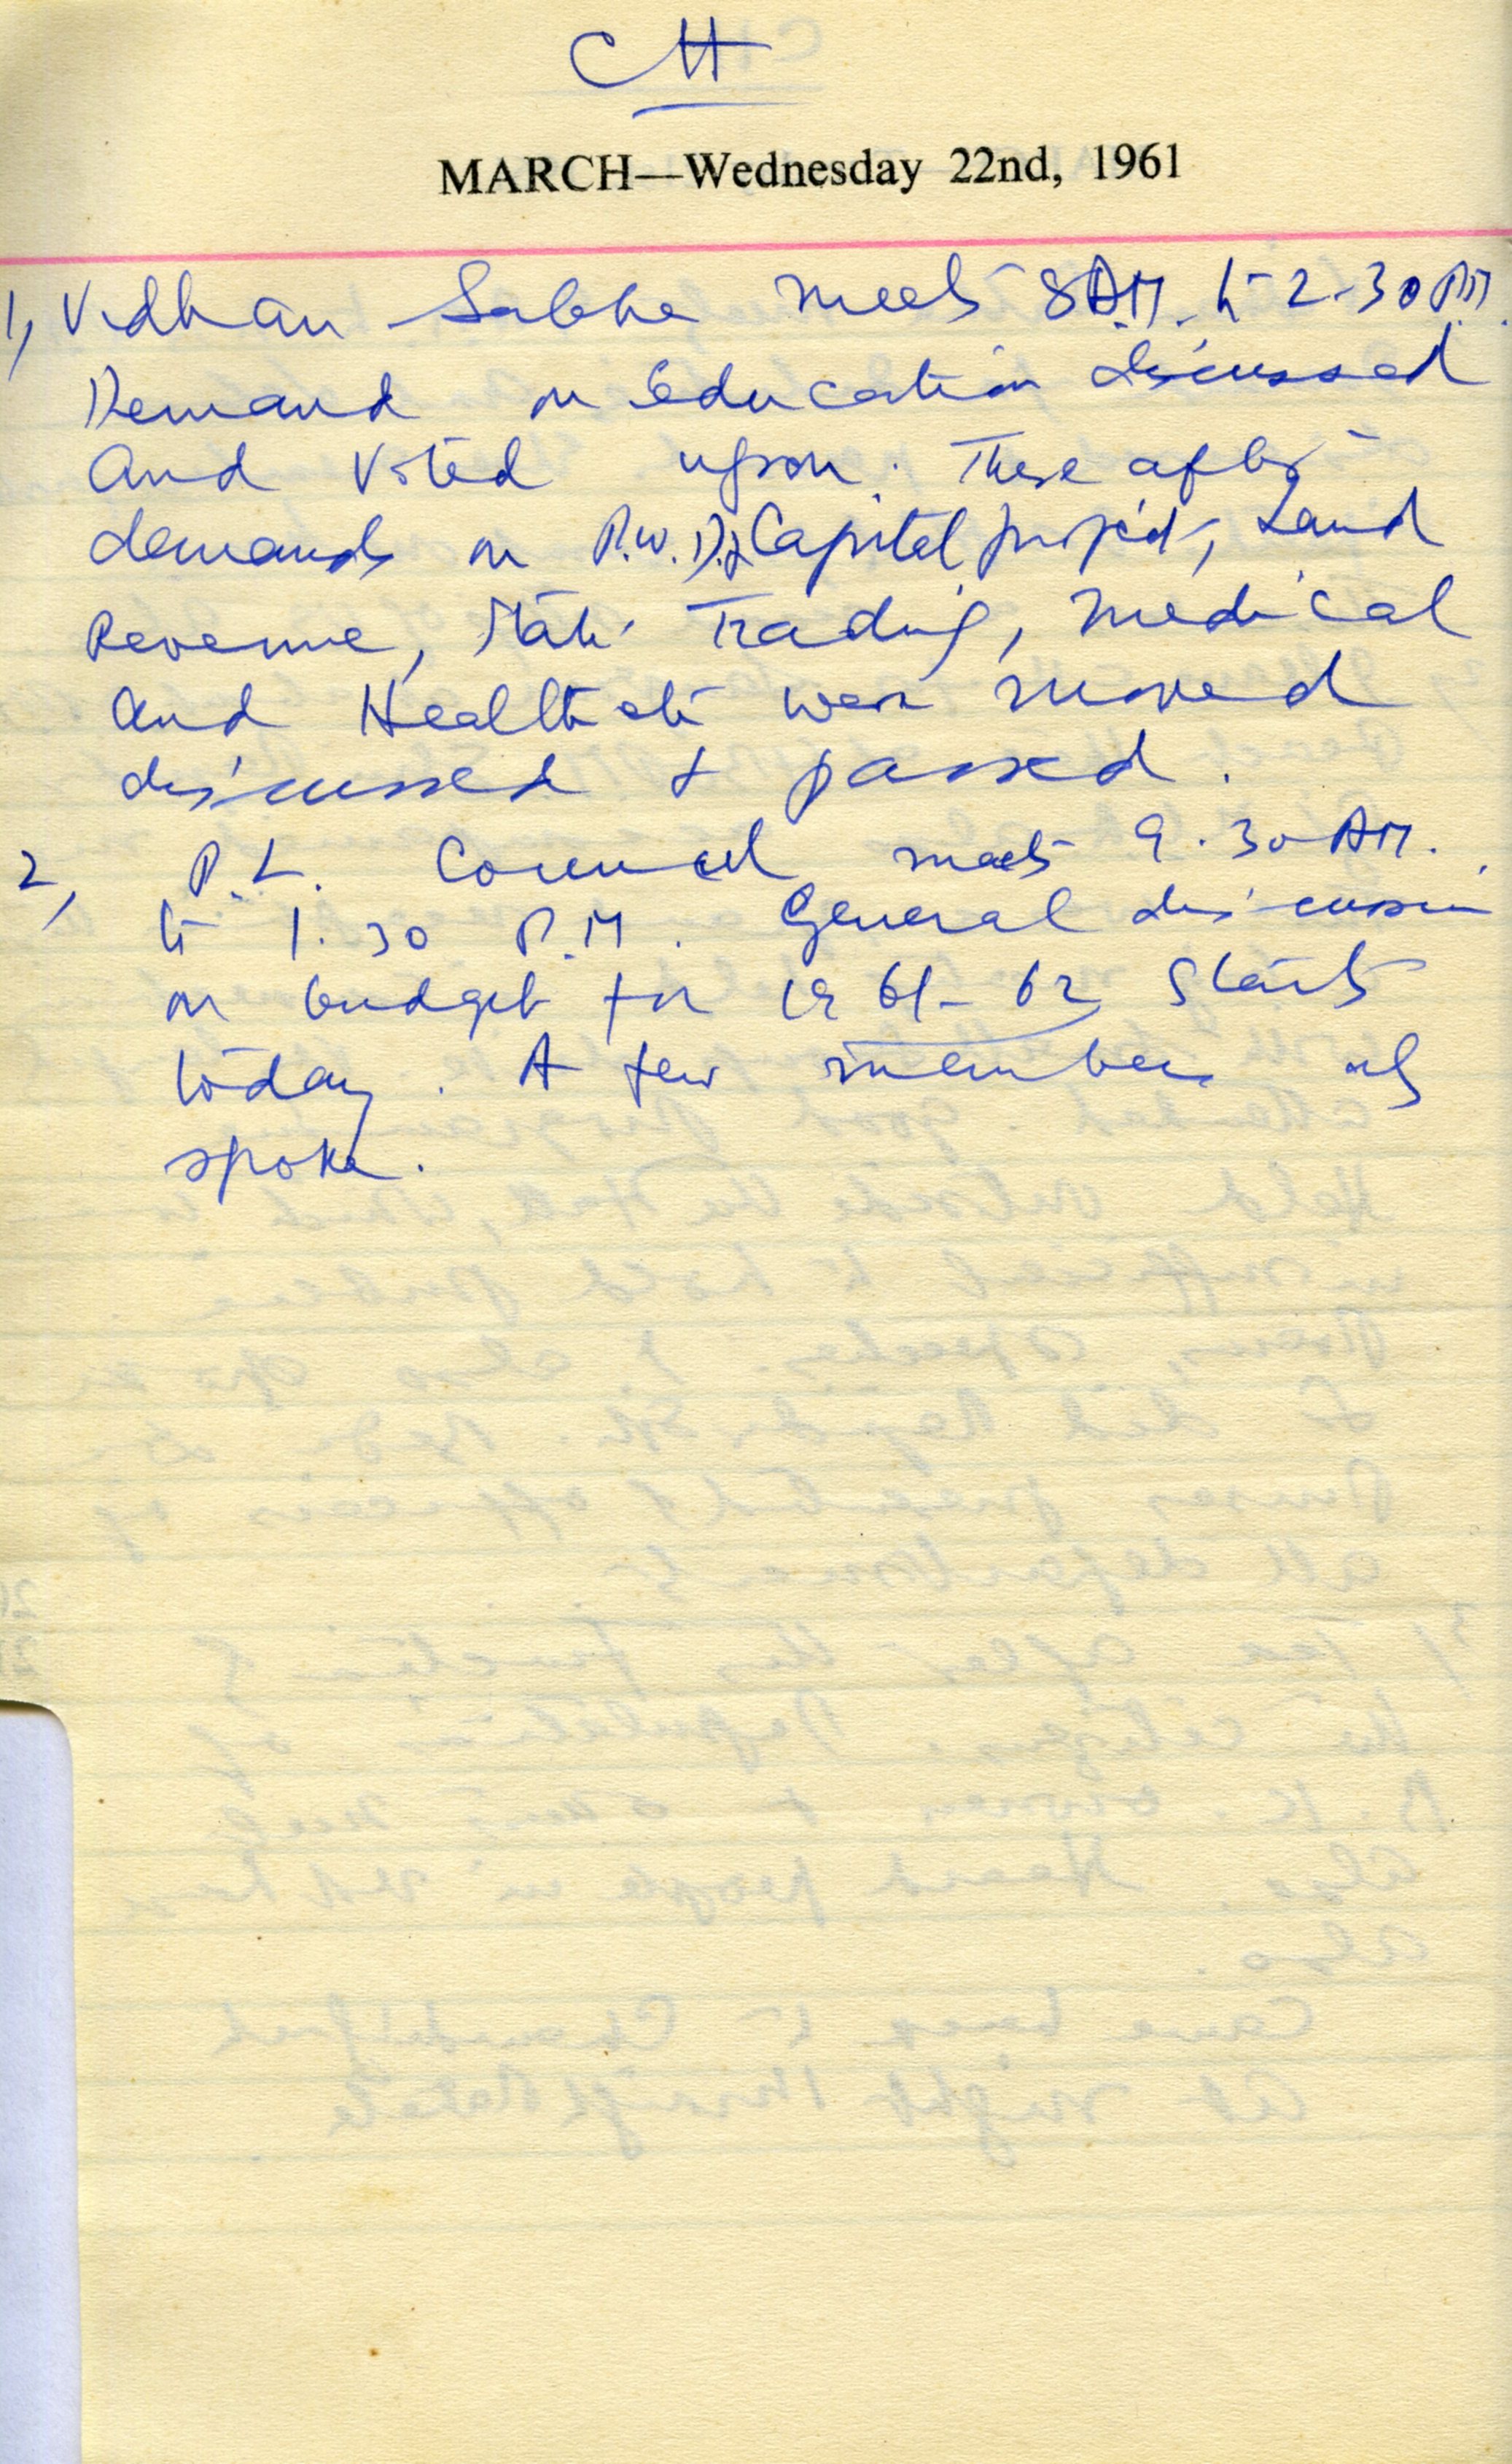 CH
MARCH—Wednesday 22nd, 1961
1, Vidhan Sabha meets 8 A.M. to 2-30 P.M.
Demand on Education discussed
and voted upon. There after
demands on P.W.D., Capital project, Land
Revenue, State Trading, Medical
and Health etc were moved
discussed & passed.
2, P.L. Council meets 9.30 AM.
to 1.30 P.M. General discussion
on budget for 1961-62 starts
today. A few members
spoke.